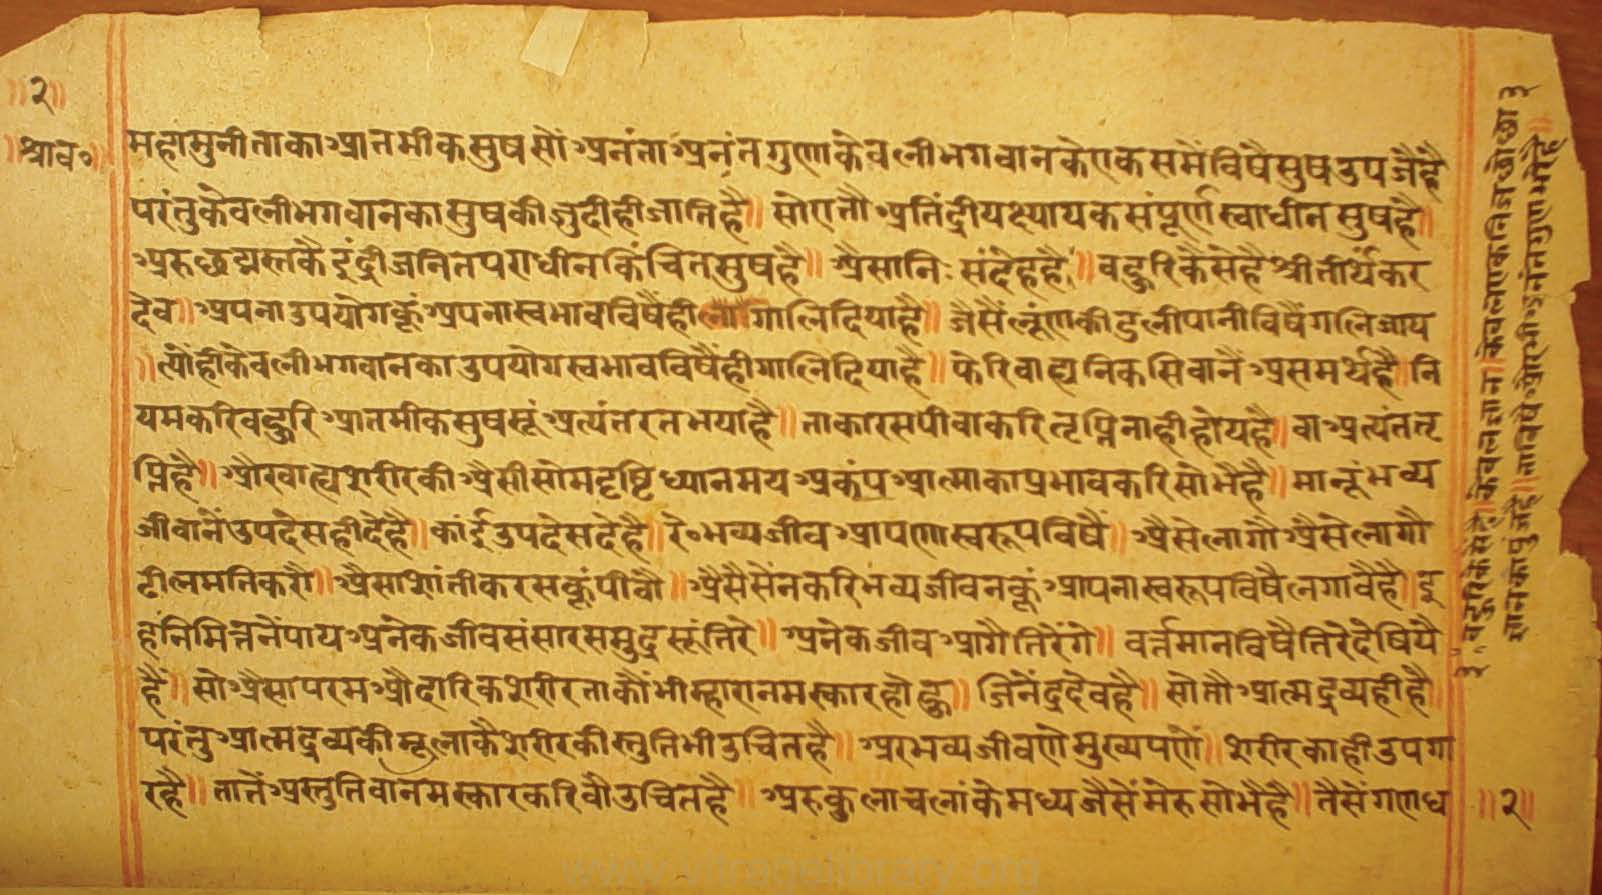 ॥२॥
॥श्राव॰॥
महामुनी ताका आतमीक सुष सों अनंता अनंत गुण केवली भगवान के एक समें विषै सुष उपजै है
परंतु केवली भगवान का सुष की जुदी ही जाति है॥ सो ए तौ अतिंद्रीय क्ष्यायक संपूर्ण स्वाधीन सुष है॥
अरु छद्मस्त कै इंद्री जनित पराधीन किंचित सुष है॥ अैसा निःसंदेह है॥ बहुरि कैसे है श्री तीर्थंकर
देव॥ अपना उपयोग कूं अपना स्वभाव विषैं ही गालि दिया है॥ जैसैं लूंण की डली पानी विषैं गलि जाय
॥त्यों ही केवली भगवान का उपयोग स्वभाव विषैं ही गालि दिया है॥ फेरि वाह्य निकसिवानें असमर्थ है॥ नि
यम करि बहुरि आतमीक सुष सूं अत्यंत रत भया है॥ ताका रस पीवा करि तृप्ति नाही होय है॥ वा अत्यंत तृ
प्ति है॥ और वाह्य शरीर की अैसी सोम दृष्टि ध्यान मय अकंप आत्मा का प्रभाव करि सोभै है॥ मानूं भव्य
जीवानें उपदेस ही दे है॥ कांई उपदेस दे है॥ रे॰ भव्य जीव आपणा स्वरूप विषैं॥ अैसे लागौ अैसे लागौ
ढील मति करौ॥ अैसा शांतीक रस कूं पीवौ॥ अैसै सेंन करि भव्य जीवन कूं आपना स्वरूप विषै लगावै है॥ इ
हं निमित्तनें पाय अनेक जीव संसार समुद्र सूं तिरे॥ अनेक जीव आगै तिरेंगे॥ वर्त्तमान विषै तिरे देषियै
हैं॥ सो अैसा परम औदारिक शरीर ताकौं भी म्हारा नमस्कार होहु॥ जिनेंद्र देव है॥ सो तौ आत्म द्रव्य ही है॥
परंतु आत्म द्रव्य की मूलता कै शरीर की स्तुति भी उचित है॥ अर भव्य जीवणें मुख्य पणें॥ शरीर का ही उपगा
र है॥ तातें अस्तुति वा नमस्कार करिवौ उचित है॥ अरु कुलाचलां के मध्य जैसें मेरु सोभै है॥ तैसें गणध
॥२॥
३ बहुरि कैसे है॥ केवलज्ञान॥ केवल एक निज
ज्ञान का पुंज है॥ ता विषै और भी अनंत गुण भरे है॥